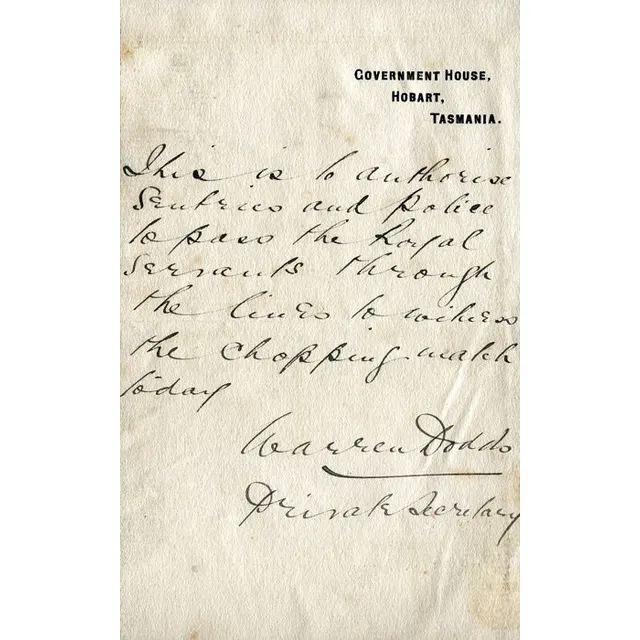 GOVERNMENT HOUSE,
HOBART,
TASMANIA.
This is to authorise
Sentries and police
to pass the Royal
Servants through
the lines to witness
the chopping match
today
Warren Dodds
Private Secretary